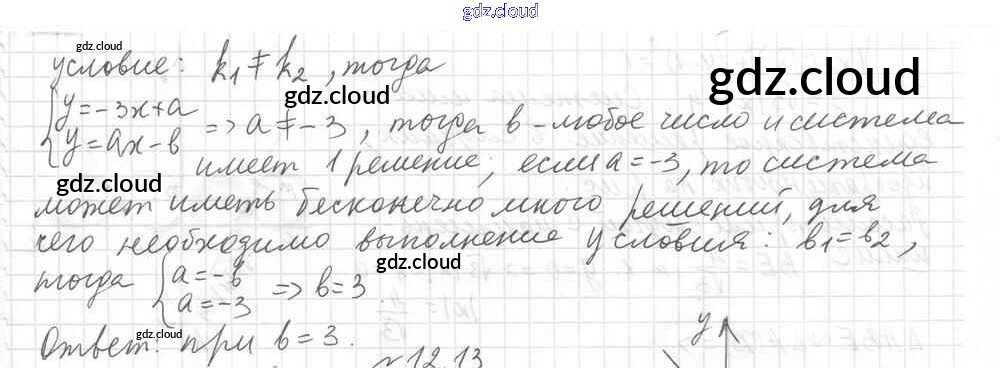 gdz.cloud
gdz.cloud
условие: k₁ ≠ k₂, тогда
gdz.cloud
gdz.cloud
{ y = -3x + a
{ y = ax - b => a ≠ -3, тогда b - любое число и система
имеет 1 решение; если a = -3, то система
gdz.cloud
может иметь бесконечно много решений, для
чего необходимо выполнение условия: b₁ = b₂,
gdz.cloud
тогда { a = -b
{ a = -3 => b = 3.
gdz.cloud
Ответ: при b = 3.
№12.13
y